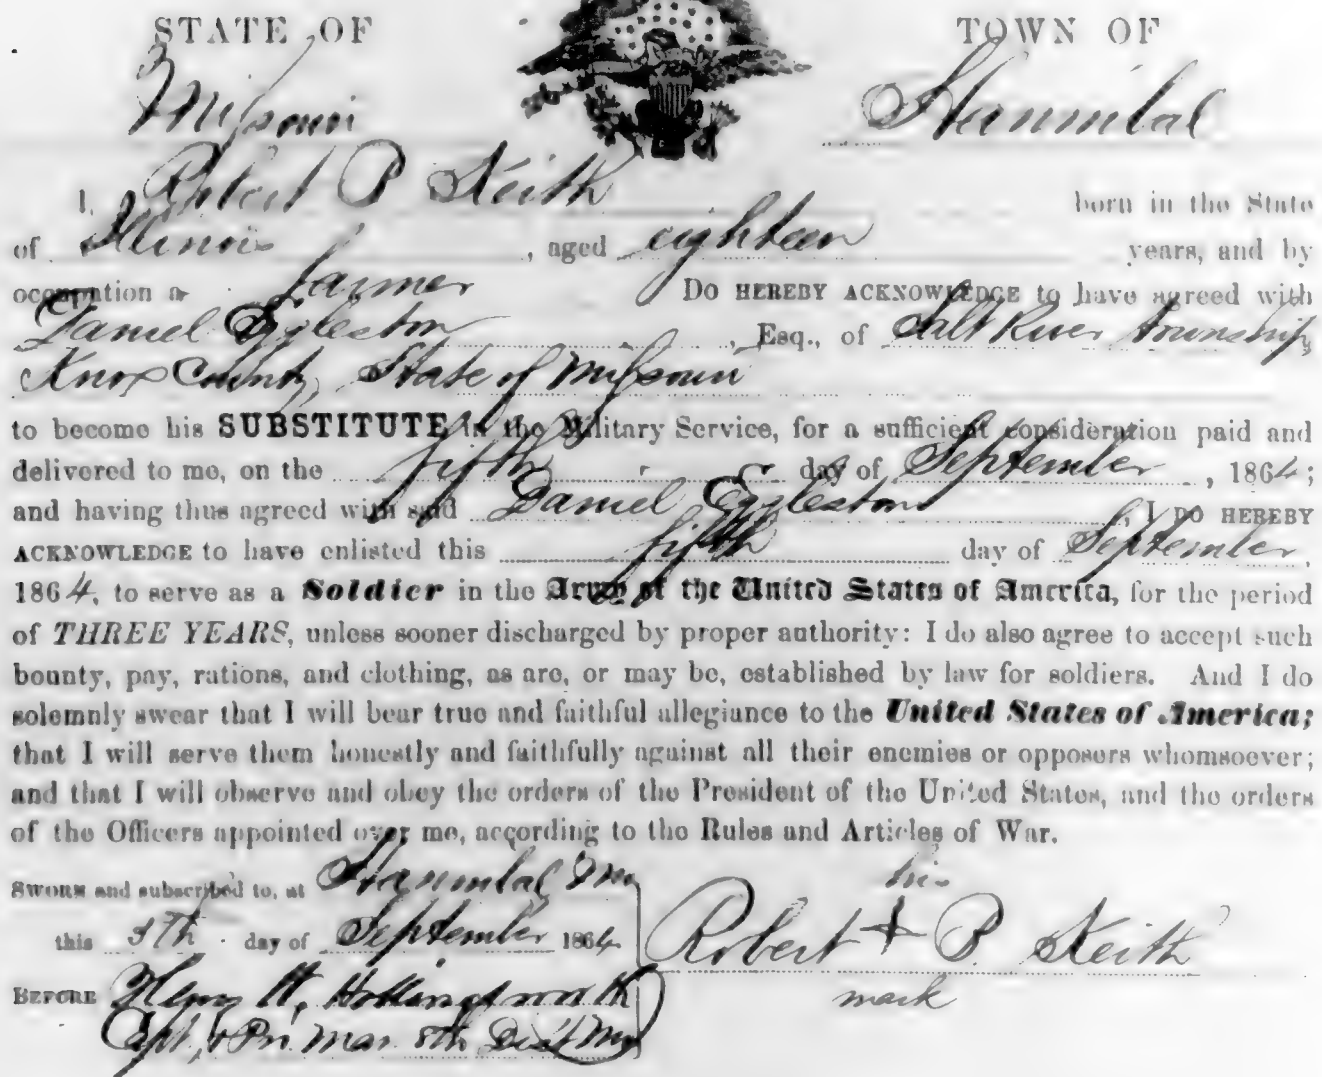 STATE OF TOWN OF
Missouri Hannibal
I, Robert P Keith born in the State
of Illinois, aged eighteen years, and by
occupation a farmer DO HEREBY ACKNOWLEDGE to have agreed with
Daniel Eggleston, Esq., of Salt River township,
Knox County, State of Missouri
to become his SUBSTITUTE in the Military Service, for a sufficient consideration paid and
delivered to me, on the fifth day of September, 1864;
and having thus agreed with said Daniel Eggleston, I DO HEREBY
ACKNOWLEDGE to have enlisted this fifth day of September,
1864, to serve as a Soldier in the Army of the United States of America, for the period
of THREE YEARS, unless sooner discharged by proper authority: I do also agree to accept such
bounty, pay, rations, and clothing, as are, or may be, established by law for soldiers. And I do
solemnly swear that I will bear true and faithful allegiance to the United States of America;
that I will serve them honestly and faithfully against all their enemies or opposers whomsoever;
and that I will observe and obey the orders of the President of the United States, and the orders
of the Officers appointed over me, according to the Rules and Articles of War.
SWORN and subscribed to, at Hannibal Mo his
this 5th day of September 1864 Robert + P Keith
BEFORE Henry W. Hollingsworth mark
Capt, & Pro Mar 8th Dist Mo